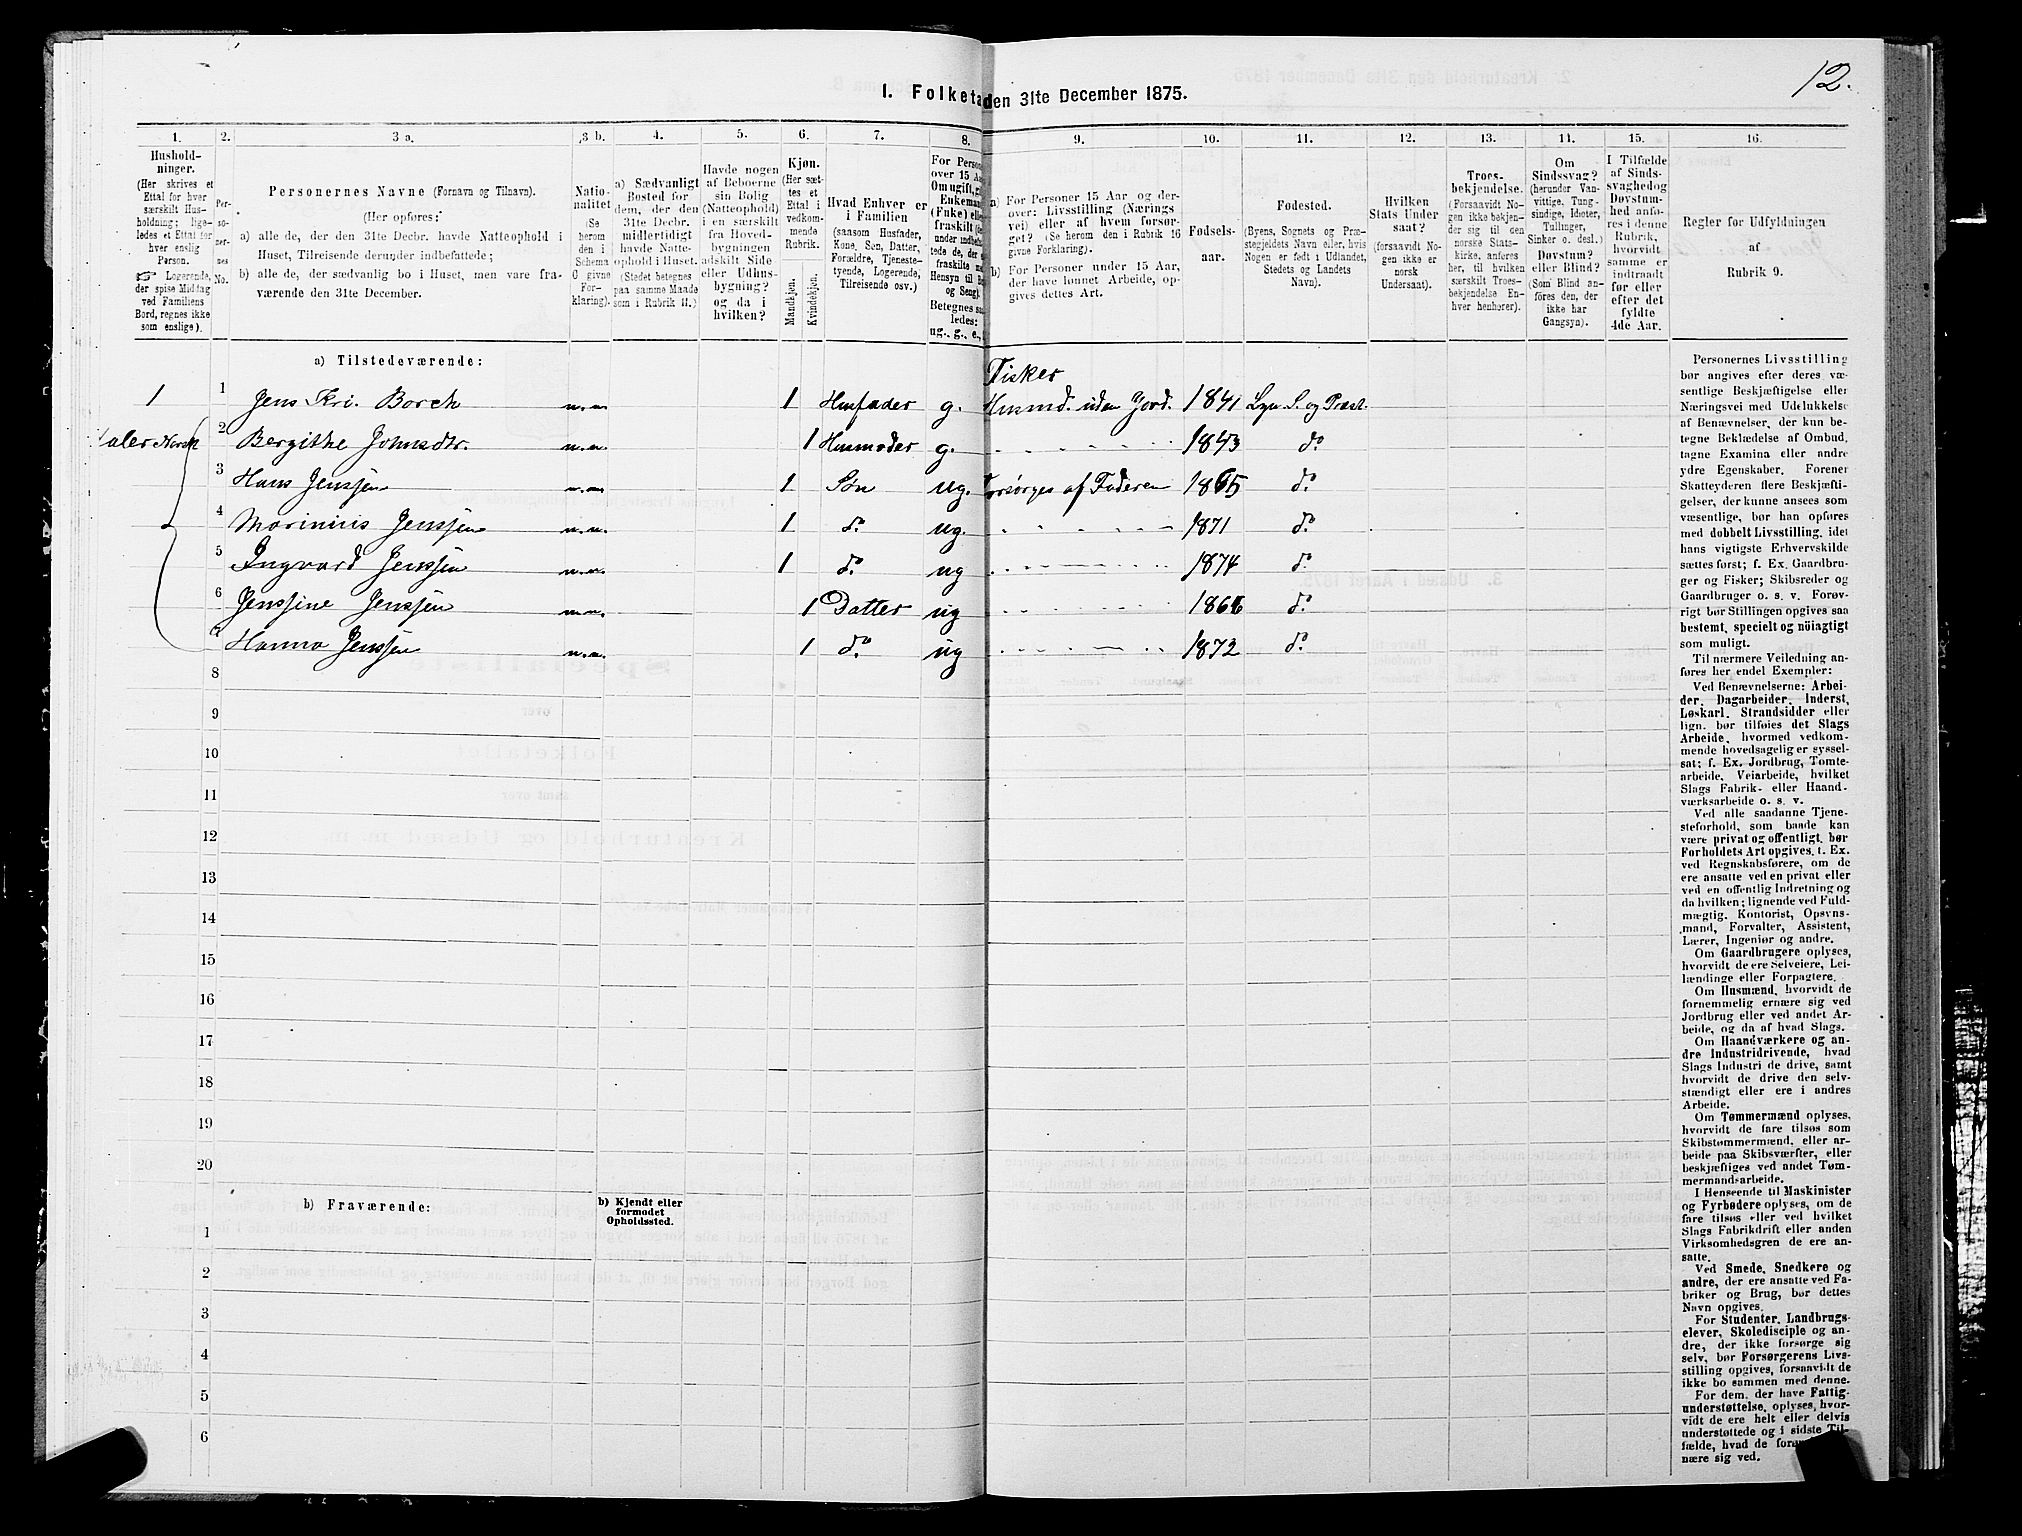 12.
I. Folketa den 31te December 1875.
1. 2. 3 a. 3 b. 4. 5. 6. 7. 8. 9. 10. 11. 12. 13. 11. 15. 16.
Hushold-
ninger.
(Her skrives et
Ettal for hver
særskilt Hus-
holdning; lige-
ledes et Ettal for
hver enslig
Person.
Logerende,
der spise Middag
ved Familiens
Bord, regnes ikke
som enslige).
Per-
so-
ner-
nes
No.
Personernes Navne (Fornavn og Tilnavn).
(Her opføres:
a) alle de, der den 31te Decbr. havde Natteophold i
Huset, Tilreisende derunder indbefattede;
b) alle de, der sædvanlig bo i Huset, men vare fra-
værende den 31te December.
Natio-
nalitet
(Se
herom
den i
Schema
C givne
For-
klaring).
a) Sædvanligt
Bosted for
dem, der den
31te Decbr.
midlertidigt
havde Natte-
ophold i Huset.
(Stedet betegnes
paa samme Maade
som i Rubrik 11.)
Havde nogen
af Beboerne
sin Bolig
(Natteophold)
i en særskilt
fra Hoved-
bygningen
adskilt Side
eller Udhus-
bygning?
og da i
hvilken?
Kjøn.
(Her sæt-
tes et
Ettal i
vedkom-
mende
Rubrik.
Mandkjøn.
Kvindekjøn.
Hvad Enhver er
i Familien
(saasom Husfader,
Kone, Søn, Datter,
Forældre, Tjeneste-
tyende, Logerende,
Tilreisende osv.)
For Person
over 15 Aa
Om ugift, gi
Enkeman
(Fuke) elle
fraskilt (e
under indbef
tede de, der e
fraskilte m
Hensyn til Bo
og Seng).
Betegnes sa
ledes:
ug., g., e.,
a) For Personer 15 Aar og der-
over: Livsstilling (Nærings
vei) eller af hvem forsør-
get? (Se herom den i Rubrik 16
givne Forklaring).
b) For Personer under 15 Aar,
der have lønnet Arbeide, op-
gives dettes Art.
Fødsels-
aar.
Fødested.
(Byens, Sognets og Præ-
stegjeldets Navn eller, hvis
Nogen er født i Udlandet,
Stedets og Landets
Navn).
Hvilken
Stats Under
saat?
(forsaavidt No-
gen ikke er
norsk
Undersaat).
Troes-
bekjendelse.
(Forsaavidt No-
gen ikke bekjen-
der sig til den
norske Stats-
kirke, anføres
her, til hvilken
særskilt Troes-
bekjendelse En-
hver henhører).
Om
Sindssvag?
(herunder Van-
vittige, Tung-
sindige, Idioter,
Tullinger,
Sinker o. desl.)
Døvstum?
eller Blind?
(Som Blind an-
føres den, der
ikke har
Gangsyn).
I Tilfælde
af Sinds-
svaghed og
Døvstum-
hed anfø-
res i denne
Rubrik,
hvorvidt
samme er
indtraadt
før eller
efter det
fyldte
4de Aar.
Regler for Udfyldningen
af
Rubrik 9.
a) Tilstedeværende:
1 1 Jens Kri. Borch n.n. 1 Husfader g. Fisker Husmd. uden Jord. 1841 Lyn S. og Præst.
taler Norsk 2 Bergithe Johnsdtr. n.n. 1 Husmoder g. 1843 do
3 Hans Jenssen n.n. 1 Søn ug. Forsørges af Faderen 1865 do
4 Marinius Jenssen n.n. 1 do ug. 1871 do
5 Ingvard Jenssen n.n. 1 do ug 1874 do
6 Jenssine Jenssen n.n. 1 Datter ug do
7 Hanna Jenssen n.n. 1 do ug 1872 do
8
9
10
11
12
13
14
15
16
17
18
19
20
b) Fraværende:
b) Kjendt eller
formodet
Opholdssted.
1
2
3
4
5
6
Personernes Livsstilling
bør angives efter deres væ-
sentlige Beskjæftigelse eller
Næringsvei med Udelukkelse
af Benævnelser, der kun be-
tegne Beklædelse af Ombud,
tagne Examina eller andre
ydre Egenskaber. Forener
Skatteyderen flere Beskjæfti-
gelser, der kunne ansees som
væsentlige, bør han opføres
med dobbelt Livsstilling, idet
hans vigtigste Erhvervskilde
sættes først; f. Ex. Gaardbru-
ger og Fisker; Skibsreder og
Gaardbruger o. s. v. Forøv-
rigt bør Stillingen opgives saa
bestemt, specielt og nøiagtigt
som muligt.
Til nærmere Veiledning an-
føres her endel Exempler:
Ved Benævnelserne: Arbei-
der, Dagarbeider, Inderst,
Løskarl, Strandsidder eller
lign. bør tilføies det Slags
Arbeide, hvormed vedkom-
mende hovedsagelig er syssel-
sat; f. Ex. Jordbrug, Tomte-
arbeide, Veiarbeide, hvilket
Slags Fabrik- eller Haand-
værksarbeide o. s. v.
Ved alle saadanne Tjene-
steforhold, som baade kan
være privat og offentligt, bør
Forholdets Art opgives, t. Ex.
ved Regnskabsførere, om de
ere ansatte ved en privat eller
ved en offentlig Indretning og
da hvilken; lignende ved Fuld-
mægtig, Kontorist, Opsyns-
mand, Forvalter, Assistent,
Lærer, Ingeniør og andre.
Om Gaardbrugere oplyses,
hvorvidt de ere Selveiere, Lei-
lændinge eller Forpagtere.
Om Husmænd, hvorvidt de
fornemmelig ernære sig ved
Jordbrug eller ved andet Ar-
beide, og da af hvad Slags.
Om Haandværkere og an-
dre Industridrivende, hvad
Slags Industri de drive, samt
hvorvidt de drive den selv-
stændigt eller ere i andres
Arbeide.
Om Tømmermænd oplyses,
hvorvidt de fare tilsøs som
Skibstømmermænd, eller ar-
beide paa Skibsværfter, eller
beskjæftiges ved andet Tøm-
mermandsarbeide.
I Henseende til Maskinister
og Fyrbødere oplyses, om de
fare tilsøs eller ved hvilket
Slags Fabrikdrift eller anden
Virksomhedsgren de ere an-
satte.
Ved Smede, Snedkere og
andre, der ere ansatte ved Fa-
briker og Brug, bør dettes
Navn opgives.
For Studenter, Landbrugs-
elever, Skoledisciple og an-
dre, der ikke forsørge sig
selv, bør Forsørgerens Livs-
stilling opgives, forsaavidt de
ikke bo sammen med denne.
For dem, der have Fattig-
understøttelse, oplyses, hvor-
vidt de ere helt eller delvis
understøttede og i sidste Til-
fælde, hvad de forøv
nære sig ved.